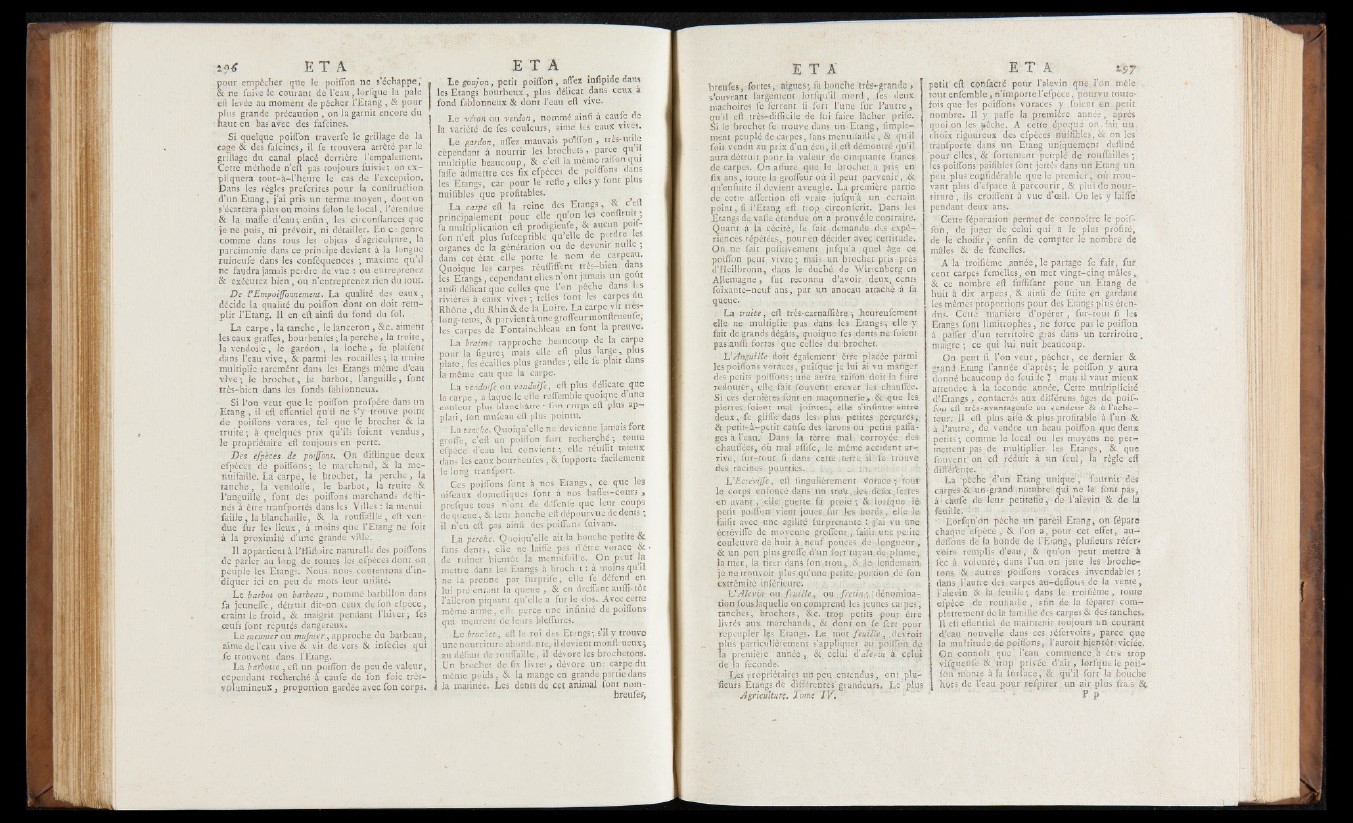 296 ETA
pour empêcher que le poiſſon ne s'échappe,
& ne ſuive le courant de l'eau, lorſque la pale
eſt levée au moment de pêcher l'Etang, & pour
plus grande précaution, on la garnit encore du
haut en bas avec des faſcines.
Si quelque poiſſon traverſe le grillage de la
cage & des faſcines, il ſe trouvera arrêté par le
grillage du canal placé derrière l'empalement.
Cette méthode n'eſt pas toujours ſuivie; on ex-
pliquera tout-à-l'heure le cas de l'exception.
Dans les règles preſcrites pour la conſtruction
d'un Etang, j'ai pris un terme moyen, dont on
s'écartera plus ou moins ſelon le local, l'étendue
& la maſſe d'eau; enfin, les circonſtances que
je ne puis, ni prévoir, ni détailler. En ce genre
comme dans tous les objets d'agriculture, la
parcimonie dans ce principe devient à la longue
ruineuſe dans les conſéquences; maxime qu'il
ne faudra jamais perdre de vue: ou entreprenez
& exécutez bien, ou n'entreprenez rien du tout.
De l'Empoiſſonnement. La qualité des eaux,
décide la qualité du poiſſon dont on doit rem-
plir l'Etang. Il en eſt ainſi du fond du ſol.
La carpe, la tanche, le lanceron, &c. aiment
les eaux graſſes, bourbeuſes; la perche, la truite,
la vendoiſe, le gardon, la loche, ſe plaiſent
dans l'eau vive, & parmi les rocailles; la truite
multiplie rarement dans les Etangs même d'eau
vive; le brochet, le barbot, l'anguille, ſont
très-bien dans les fonds ſablonneux.
Si l'on veut que le poiſſon proſpère dans un
Etang, il eſt eſſentiel qu'il ne s'y trouve point
de poiſſons voraces, tel que le brochet & la
truite; à quelques prix qu'ils ſoient vendus,
le propriétaire eſt toujours en perte.
Des eſpèces de poiſſons. On diſtingue deux
eſpèces de poiſſons; le marchand, & la me-
nuiſaille. La carpe, le brochet, la perche, la
tanche, la vendoiſe, le barbot, la truite &
l'anguille, ſont des poiſſons marchands deſti-
nés à être tranſportés dans les Villes: la menui-
ſaille, la blanchaille, & la rouſſaille, eſt ven-
due ſur les lieux, à moins que l'Etang ne ſoit
à la proximité d'une grande ville.
Il appartient à l'Hiſtoire naturelle des poiſſons
de parler au long de toutes les eſpèces dont on
peuple les Etangs. Nous nous contentons d'in-
diquer ici en peu de mots leur utilité.
Le barbot ou barbeau, nommé barbillon dans
ſa jeuneſſe, détruit dit-on ceux de ſon eſpece,
craint le froid, & maigrit pendant l'hiver; ſes
œufs ſont réputés dangereux.
Le meunier ou muſnier, approche du barbeau,
aime de l'eau vive & vit de vers & inſectes qui
ſe trouvent dans l'Etang.
La barbotte, eſt un poiſſon de peu de valeur,
cependant recherché à cauſe de ſon foie très-
volumineux, proportion gardée avec ſon corps.
ETA
Le goujon, petit poiſſon, aſſez inſipide dans
les Etangs bourbeux, plus délicat dans ceux à
fond ſablonneux & dont l'eau eſt vive.
Le véron ou verdon, nommé ainſi à cauſe de
la variété de ſes couleurs, aime les eaux vives.
Le gardon, aſſez mauvais poiſſon, très-utile
cependant à nourrir les brochets, parce qu'il
multiplie beaucoup, & c'eſt la même raiſon qui
faſſe admettre ces ſix eſpèces de poiſſons dans
les Etangs, car pour le reſte, elles y ſont plus
nuiſibles que profitables.
La carpe eſt la reine des Etangs, & c'eſt
principalement pour elle qu'on les conſtruit;
ſa multiplication eſt prodigieuſe, & aucun poiſ-
ſon n'eſt plus ſuſceptible qu'elle de perdre les
organes de la génération ou de devenir nulle;
dans cet état elle porte le nom de carpeau.
Quoique les carpes réuſſiſſent très-bien dans
les Etangs, cependant elles n'ont jamais un goût
auſſi délicat que celles que l'on pêche dans les
rivières à eaux vives; telles ſont les carpes du
Rhône, du Rhin & de la Loire. La carpe vit très-
long-tems, & parvient à une groſſeur monſtrueuſe,
les carpes de Fontainebleau en ſont la preuve.
La breme rapproche beaucoup de la carpe
pour la figure; mais elle eſt plus large, plus
plate, ſes écailles plus grandes; elle ſe plaît dans
la même eau que la carpe.
La vendoiſe ou vandoiſe, eſt plus délicate que
la carpe, à laquelle elle reſſemble quoique d'une
couleur plus blanchâtre: ſon corps eſt plus ap-
plati, ſon muſeau eſt plus pointu.
La tanche. Quoiqu'elle ne devienne jamais fort
groſſe, c'eſt un poiſſon fort recherché; toute
eſpèce d'eau lui convient; elle réuſſit mieux
dans les eaux bourbeuſes, & ſupporte facilement
le long tranſport.
Ces poiſſons ſont à nos Etangs, ce que les
oiſeaux domeſtiques ſont à nos baſſes-cours,
preſque tous n'ont de défenſe que leur coups
de queue, & leur bouche eſt dépourvue de dents;
il n'en eſt pas ainſi des poiſſons ſuivans.
La perche. Quoiqu'elle ait la bouche petite &
ſans dents, elle ne laiſſe pas d'être vorace &
de ruiner bientôt la menuiſaille. On peut la
mettre dans les Etangs à brochet: à moins qu'il
ne la prenne par ſurpriſe, elle ſe défend en
lui préſentant la queue, & en dreſſant auſſi-tôt
l'aileron piquant qu'elle a ſur le dos. Avec cette
même arme, elle perce une infinité de poiſſons
qui meurent de leurs bleſſures.
Le brochet, eſt le roi des Etangs; s'il y trouve
une nourriture abondante, il devient monſtrueux;
au défaut de rouſſaille, il dévore les brochetons.
Un brochet de ſix livres, dévore une carpe du
même poids, & la mange en grande partie dans
la matinée. Les dents de cet animal ſont nom-
breuſes,
ETA
breuſes, fortes, aigues; ſa bouche très-grande,
s'ouvrant largement lorſqu'il mord, ſes deux
machoires ſe ſerrent ſi fort l'une ſur l'autre,
qu'il eſt très-difficile de lui faire lâcher priſe.
Si le brochet ſe trouve dans un Etang, ſimple-
ment peuplé de carpes, ſans menuiſaille, & qu'il
ſoit vendu au prix d'un écu, il eſt démontré qu'il
aura détruit pour la valeur de cinquante francs
de carpes. On aſſure que le brochet a pris en
ſix ans, toute la groſſeur où il peut parvenir, &
qu'enſuite il devient aveugle. La première partie
de cette aſſertion eſt vraie juſqu'à un certain
point, ſi l'Etang eſt trop circonſcrit. Dans les
Etangs de vaſte étendue on a prouvé le contraire.
Quant à la cécité, le fait demande des expé-
riences répétées, pour en décider avec certitude.
On ne ſait poſitivement juſqu'à quel âge ce
poiſſon peut vivre; mais un brochet pris près
d'Heilbronn, dans le duché de Wirtenberg en
Allemagne, fut reconnu d'avoir deux cents
ſoixante-neuf ans, par un anneau attaché à ſa
queue.
La truite, eſt très-carnaſſière; heureuſement
elle ne multiplie pas dans les Etangs; elle y
fait de grands dégâts, quoique ſes dents ne ſoient
pas auſſi fortes que celles du brochet.
L'Anguille doit également être placée parmi
les poiſſons voraces, puiſque je lui ai vu manger
des petits poiſſons; une autre raiſon doit la faire
redouter, elle fait ſouvent crever les chauſſée.
Si ces dernières ſont en maçonnerie, & que les
pierres ſoient mal jointes, elle s'inſinue entre
deux, ſe gliſſe dans les plus petites gerçures,
& petit-à-petit cauſe des larons ou petits paſſa-
ges à l'eau. Dans la terre mal corroyée des
chauſſées, où mal aſſiſe, le même accident ar-
rive, ſur-tout ſi dans cette terre il ſe trouve
des racines pourries.
L'Ecréviſſe, eſt ſingulièrement vorace; tout
le corps enfoncé dans un trou, les deux ſerres
en avant, elle guette ſa proie; & lorſque le
petit poiſſon vient jouer ſur les bords, elle le
ſaiſit avec une agilité ſurprenante: j'ai vu une
écréviſſe de moyenne groſſeur, ſaiſir une petite
couleuvre de huit à neuf pouces de longueur,
& un peu plus groſſe d'un fort tuyau de plume,
la tuer, la tirer dans ſon trou, & le lendemain
je ne trouvoir plus qu'une petite portion de ſon
extrêmité inférieure.
L'Alevin ou feuille, ou fretin, dénomina-
tion ſous laquelle on comprend les jeunes carpes,
tanches, brochets, &c. trop petits pour être
livrés aux marchands, & dont on ſe ſert pour
repeupler les Etangs. Le mot feuille, devroit
plus particulièrement s'appliquer au poiſſon de
la première année, & celui d'alevin à celui
de la ſeconde.
Les propriétaires un peu entendus, ont plu-
ſieurs Etangs de différentes grandeurs. Le plus
Agriculture. Tome IV.
ETA 297
petit eſt conſacré pour l'alevin que l'on mêle
tout enſemble, n'importe l'eſpece, pourvu toute-
fois que les poiſſons voraces y ſoient en petit
nombre. Il y paſſe la première année, après
quoi on les pêche. A cette époque on fait un
choix rigoureux des eſpèces nuiſibles, & on les
tranſporte dans un Etang uniquement deſtiné
pour elles, & fortement peuplé de rouſſailles;
les poiſſons paiſibles ſont jettés dans un Etang un
peu plus conſidérable que le premier, où trou-
vant plus d'eſpace à parcourir, & plus de nour-
riture, ils croiſſent à vue d'œil. On les y laiſſe
pendant deux ans.
Cette ſéparation permet de connoître le poiſ-
ſon, de juger de celui qui a le plus profité,
de le choiſir; enfin de compter le nombre de
mâles & de femelles.
A la troiſième année, le partage ſe fait, ſur
cent carpes femelles, on met vingt-cinq mâles,
& ce nombre eſt ſuffiſant pour un Etang de
huit à dix arpens, & ainſi de ſuite en gardant
les mêmes proportions pour des Etangs plus éten-
dus. Cette manière d'opérer, ſur-tout ſi les
Etangs ſont limitrophes, ne force pas le poiſſon
à paſſer d'un territoire gras dans un terriroire
maigre; ce qui lui nuit beaucoup.
On peut ſi l'on veut, pêcher, ce dernier &
grand Etang l'année d'après; le poiſſon y aura
donné beaucoup de feuille; mais il vaut mieux
attendre à la ſeconde année. Cette multiplicité
d'Etangs, conſacrés aux différens âges de poiſ-
ſon eſt très-avantageuſe au vendeur & à l'ache-
teur. Il eſt plus aiſé & plus profitable à l'un &
à l'autre, de vendre un beau poiſſon que deux
petits; comme le local ou les moyens ne per-
mettent pas de multiplier les Etangs, & que
ſouvent on eſt réduit à un ſeul, la règle eſt
différente.
La pêche d'un Etang unique, fournit des
carpes & un grand nombre qui ne le ſont pas,
à cauſe de leur petiteſſe, de l'alevin & de la
feuille.
Lorſqu'on pêche un pareil Etang, on ſépare
chaque eſpece, & l'on a, pour cet effet, au-
deſſous de la bonde de l'Etang, pluſieurs réſer-
voirs remplis d'eau, & qu'on peut mettre à
ſec à volonté; dans l'un on jette les broche-
tons & autres poiſſons voraces invendables;
dans l'autre des carpes au-deſſous de la vente,
l'alevin & la feuille; dans le troiſième, toute
eſpèce de rouſſaille, afin de la ſéparer com-
plettement de la famille des carpes & des tanches.
Il eſt eſſentiel de maintenir toujours un courant
d'eau nouvelle dans ces réſervoirs, parce que
la multitude de poiſſons, l'auroit bientôt viciée.
On connoît que l'eau commence à être trop
viſqueuſe & trop privée d'air, lorſque le poiſ-
ſon monte à la ſurface, & qu'il ſort la bouche
hors de l'eau pour reſpirer un air plus frais &
P p